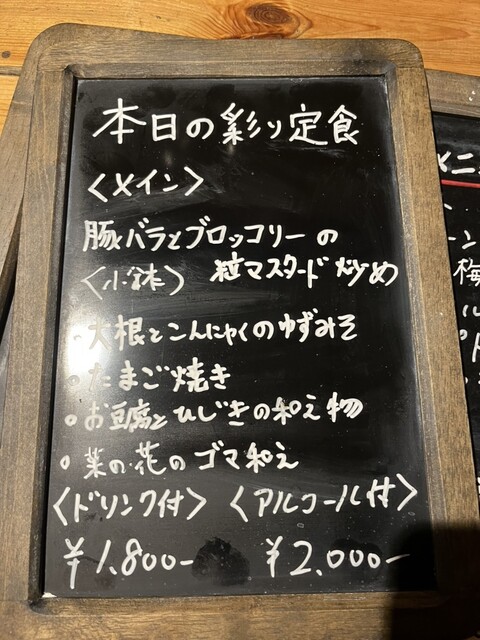 本日の彩り定食
〈メイン〉
豚バラとブロッコリーの
粒マスタード炒め
〈小鉢〉
・大根とこんにゃくのゆずみそ
・たまご焼き
・お豆腐とひじきの和え物
・菜の花のゴマ和え
〈ドリンク付〉 〈アルコール付〉
¥1.800- ¥2.000-
メニ
梅